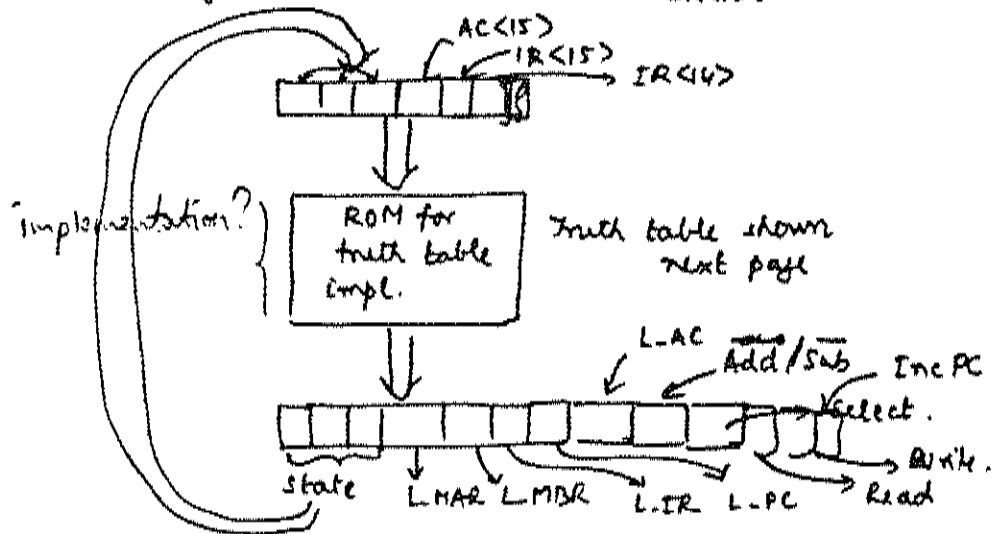 AC<15>
IR<15>
IR<14>
implementation?
ROM for
truth table
impl.
Truth table shown
next page
L_AC
Add / Sub
Inc PC
Select.
Write.
Read
state
L_MAR
L_MBR
L_IR
L_PC